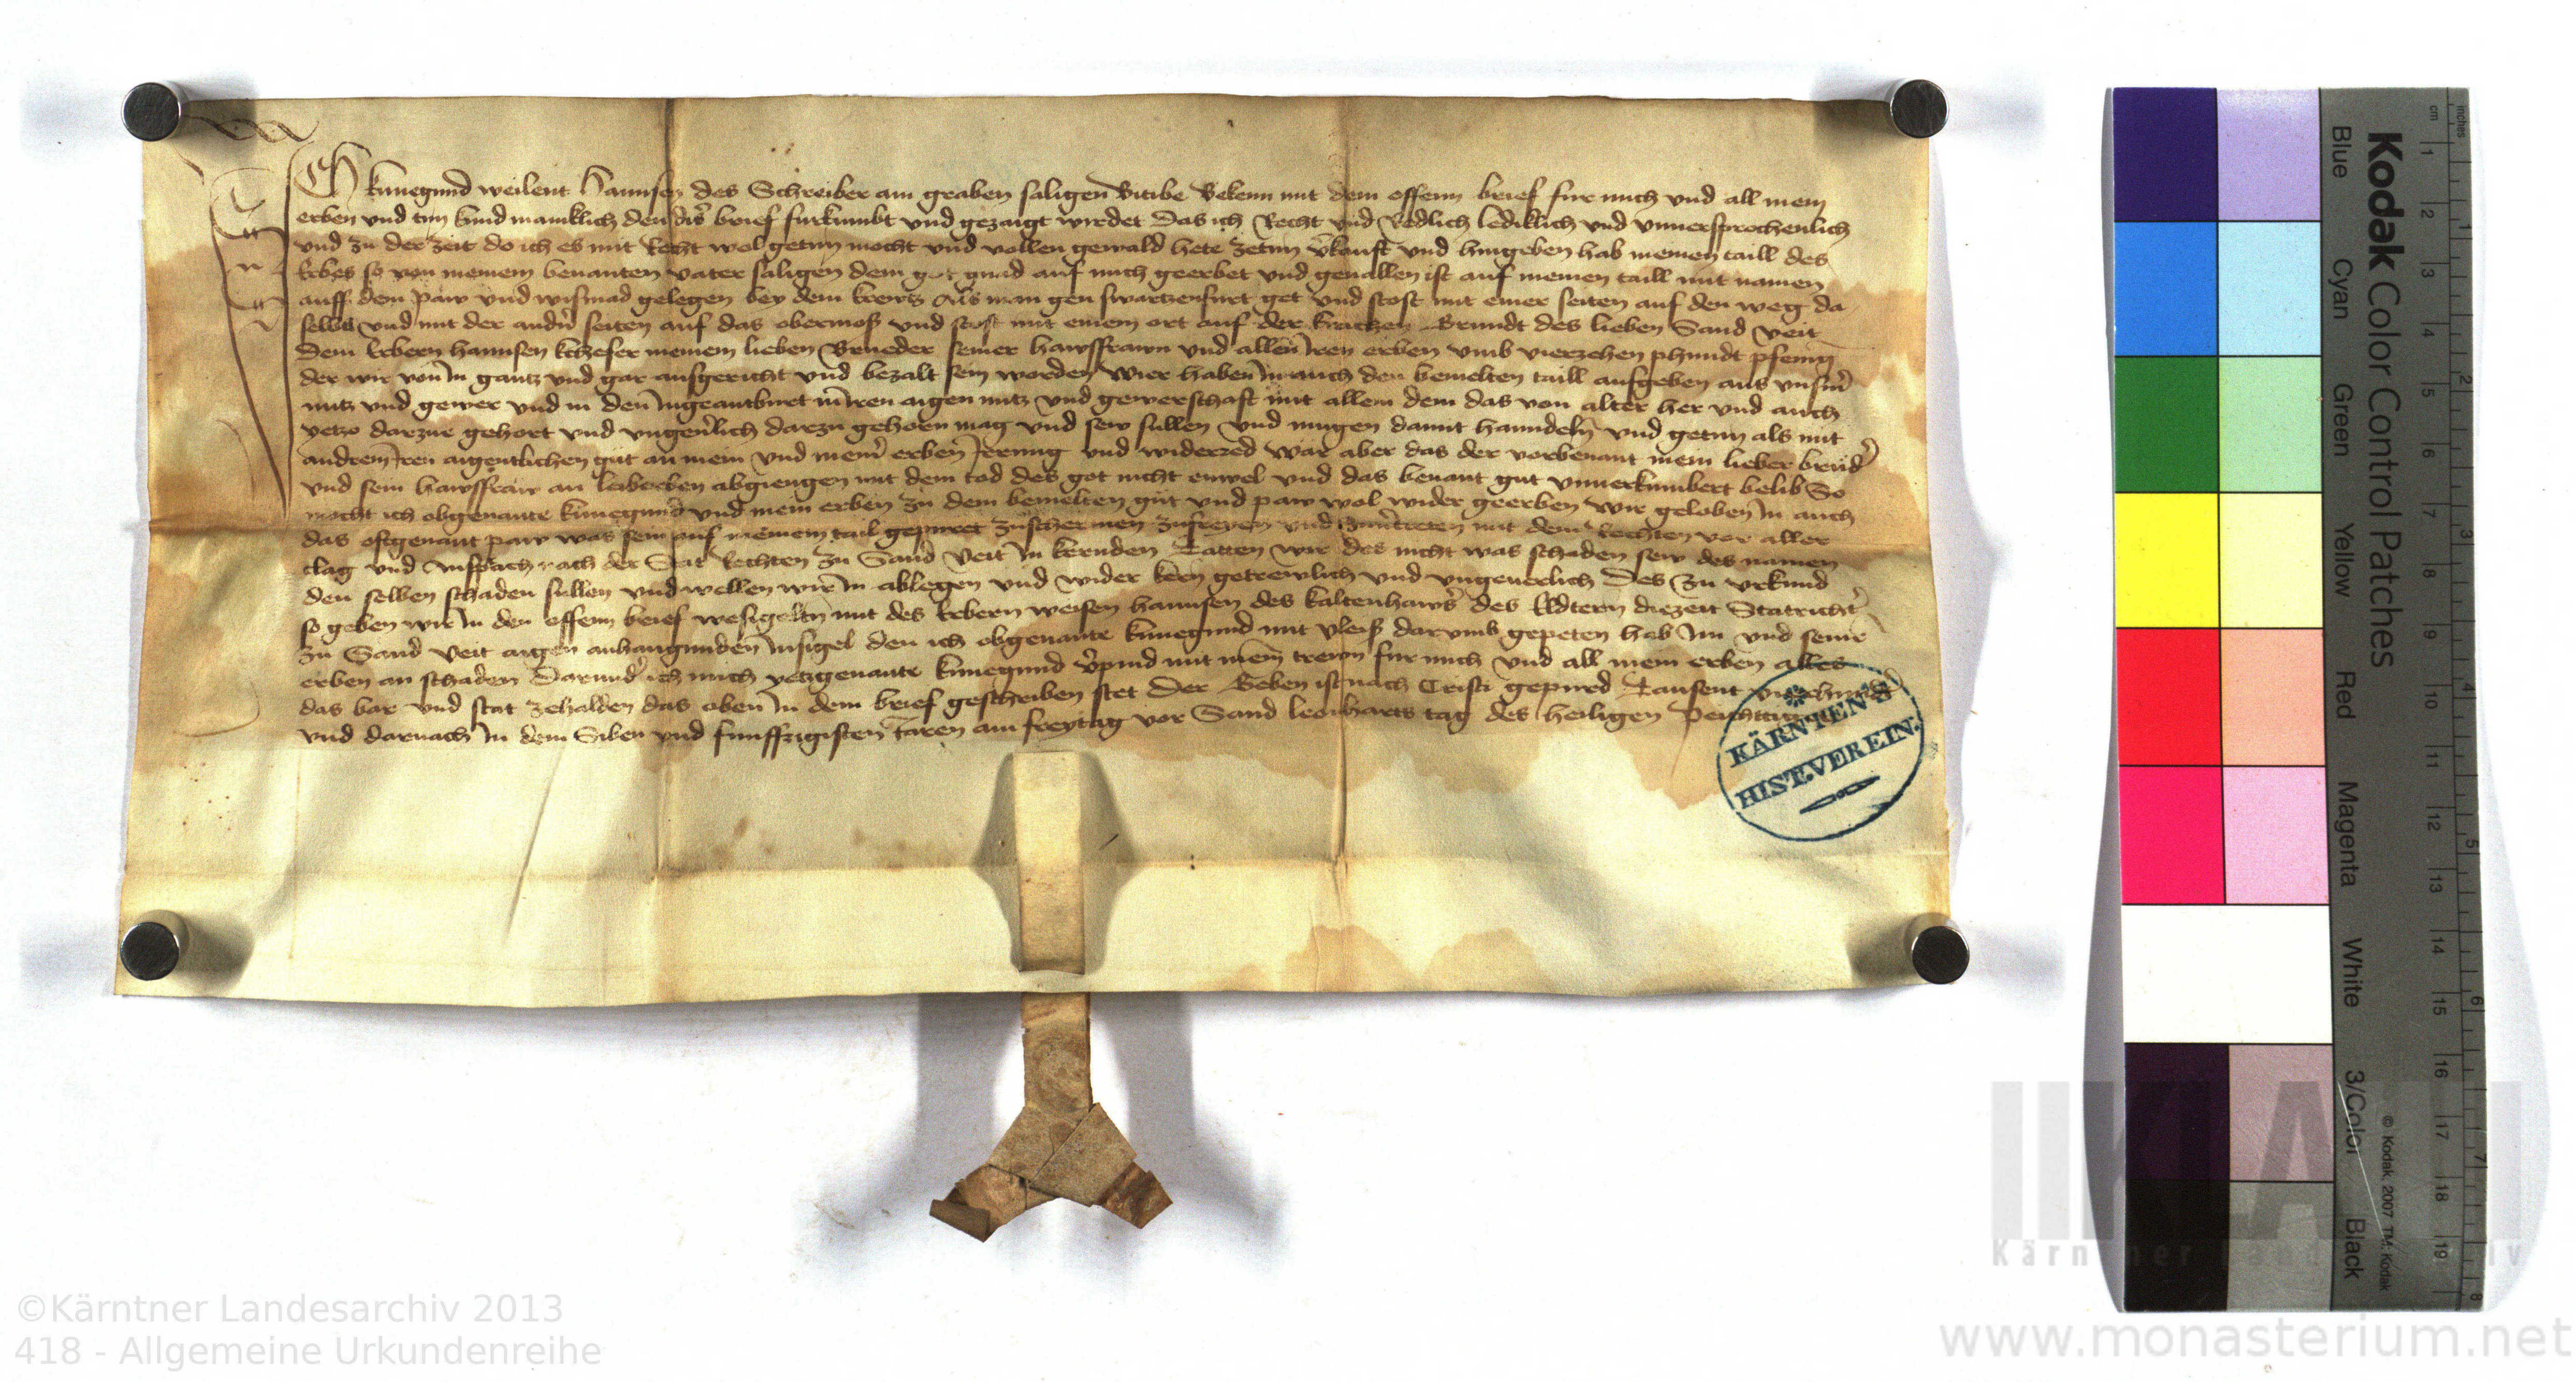 Ich kunegund weilent Hannsen des Schreiber am graben saligen Witibe Bekenn mit dem offenn brief fur mich und all mein
erben und tun kund manklich den dis̉ brief furkumbt und gezaigt wirdet Das ich Recht und Redlich lediklich und unuersprochenlich
und zu der zeit do ich es mit Recht wol getun mocht und vollen gewald hete zetun v̉kauft und hingeben hab meinen taill des
Erbes so von meinem benanten vater saligen dem got gnad auf mich geerbet und geuallen ist auf meinen taill mit namen
auff dem paw und wismad gelegen bey dem krewtz Als man gen swartzenfurt get und stost mit einer seiten auf den weg da
selbs und mit der andn̉ seiten auf das obermoß und stost mit einem ort auf der Grundt des lieben Sand veit
Dem Erbern hannsen meinem lieben Brueder seiner hawsfrawn und allen Iren erben umb vierzehen phundt pfenig
der wir von In gantz und gar ausgericht und bezalt sein worden Wier haben In auch den bemelten taill aufgeben aus unsm̉
nutz und gewer und in den Ingeantburt in Iren aigen nutz und gewerschaft mit allem dem das von alter her und auch
yetzo darzue gehort und ungeủlich darzu gehorn mag und sew sullen und mugen damit hanndeln und getun als mit
andrem Iren aigentlichen gut an mein und mein̉ erben Irrung und widerred wär aber das der vorbenant mein lieber brud̉
und sein hawsfraw an leiberben abgiengen mit dem tod des got nicht enwel und das benant gut unuerkumbert belib So
mocht ich obgenante kunegund und mein erben zu dem bemelten gut und paw wol wider geerben Wir geloben In auch
das oftgenant paw was sein auf meinem tail gepuret zuschermen zufreyen und zuủtreten mit dem Rechten vor aller
clag und Ansprach nach der Stat Rechten zu Sand Veit In kernden Tatten wir des nicht was schaden sew des namen
den selben schaden sullen und wellen wir In ablegen und wider kern getrewlich und ungeuerlich Des zu urkund
so geben wir In den offenn brief wesigeltn mit des Erbern weisen hannsen des kaltenhaws̉ des Eldtern diezeit Statricht̉
zu Sand Veit aigen anhangunden Insigel den ich obgenante kunegund mit vleiß darumb gepeten hab Im und seinr
erben an schaden Darund̉ ich mich yetzgenante kunegund v̉pind mit mein trewn fur mich und all mein erben alles
das bar und stat zehalden das oben In dem brief geschriben stet Der Geben ist nach Cristi gepurd Tausent
und darnach In dem Siben und funffzigisten Jaren am freytag vor Sand leonharts tag des heiligen
KÄRNTEN'S
HIST.VEREIN.
Kodak Color Control Patches
Blue Cyan Green Yellow Red Magenta White 3/Color Black
© Kodak, 2007 TM: Kodak
cm 1 2 3 4 5 6 7 8 9 10 11 12 13 14 15 16 17 18 19
inches 1 2 3 4 5 6 7 8
Kärntner Landesarchiv
©Kärntner Landesarchiv 2013
418 - Allgemeine Urkundenreihe
www.monasterium.net